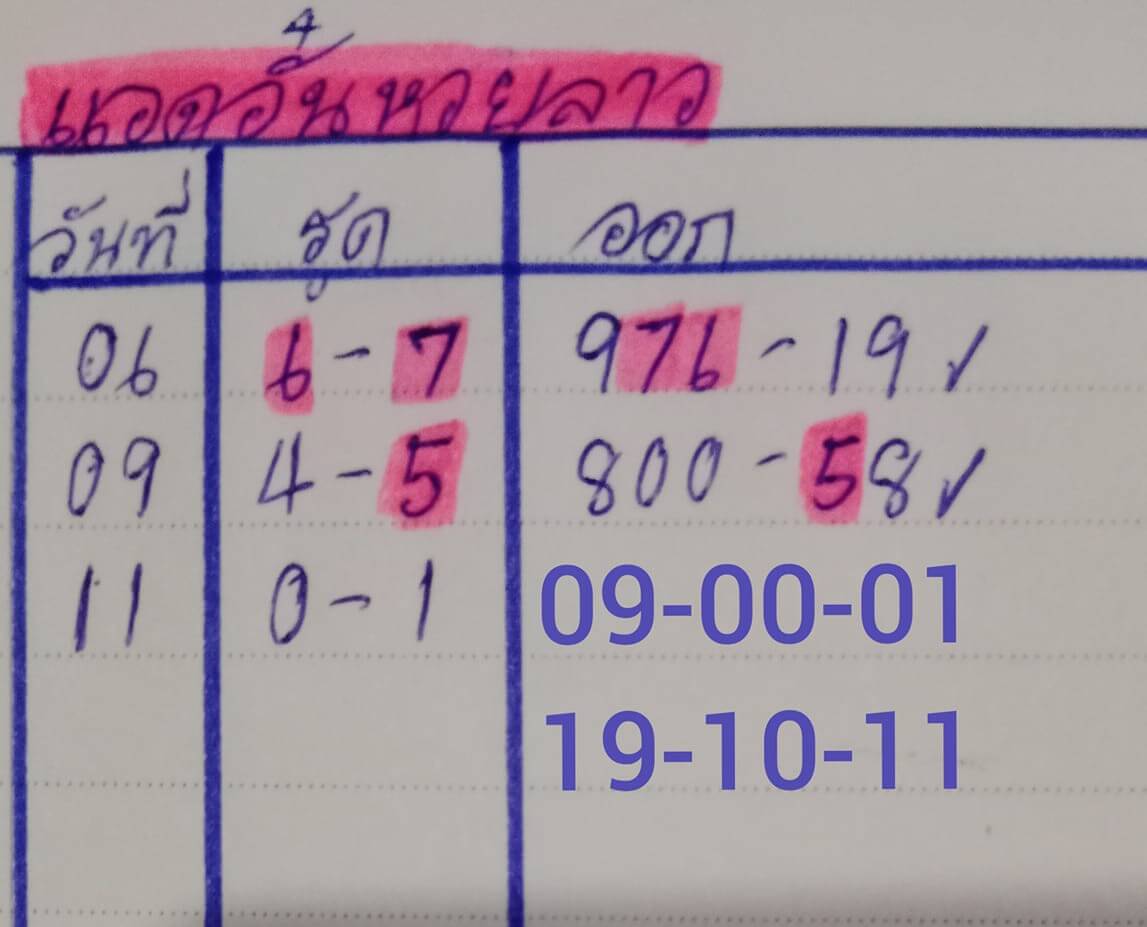 แอดอั๋นหวยลาว
วันที่ รูด ออก
06 6-7 976-19 ✓
09 4-5 800-58 ✓
11 0-1 09-00-01
19-10-11